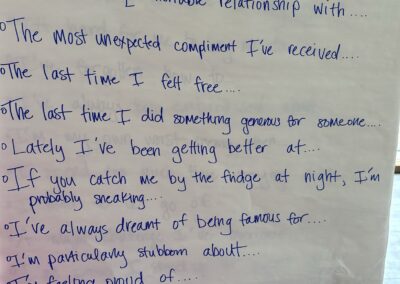 relationship with....
°The most unexpected compliment I've received....
°The last time I felt free....
°The last time I did something generous for someone....
°Lately I've been getting better at....
°If you catch me by the fridge at night, I'm
probably sneaking....
°I've always dreamt of being famous for....
°I'm particularly stubborn about....
°I'm feeling proud of....